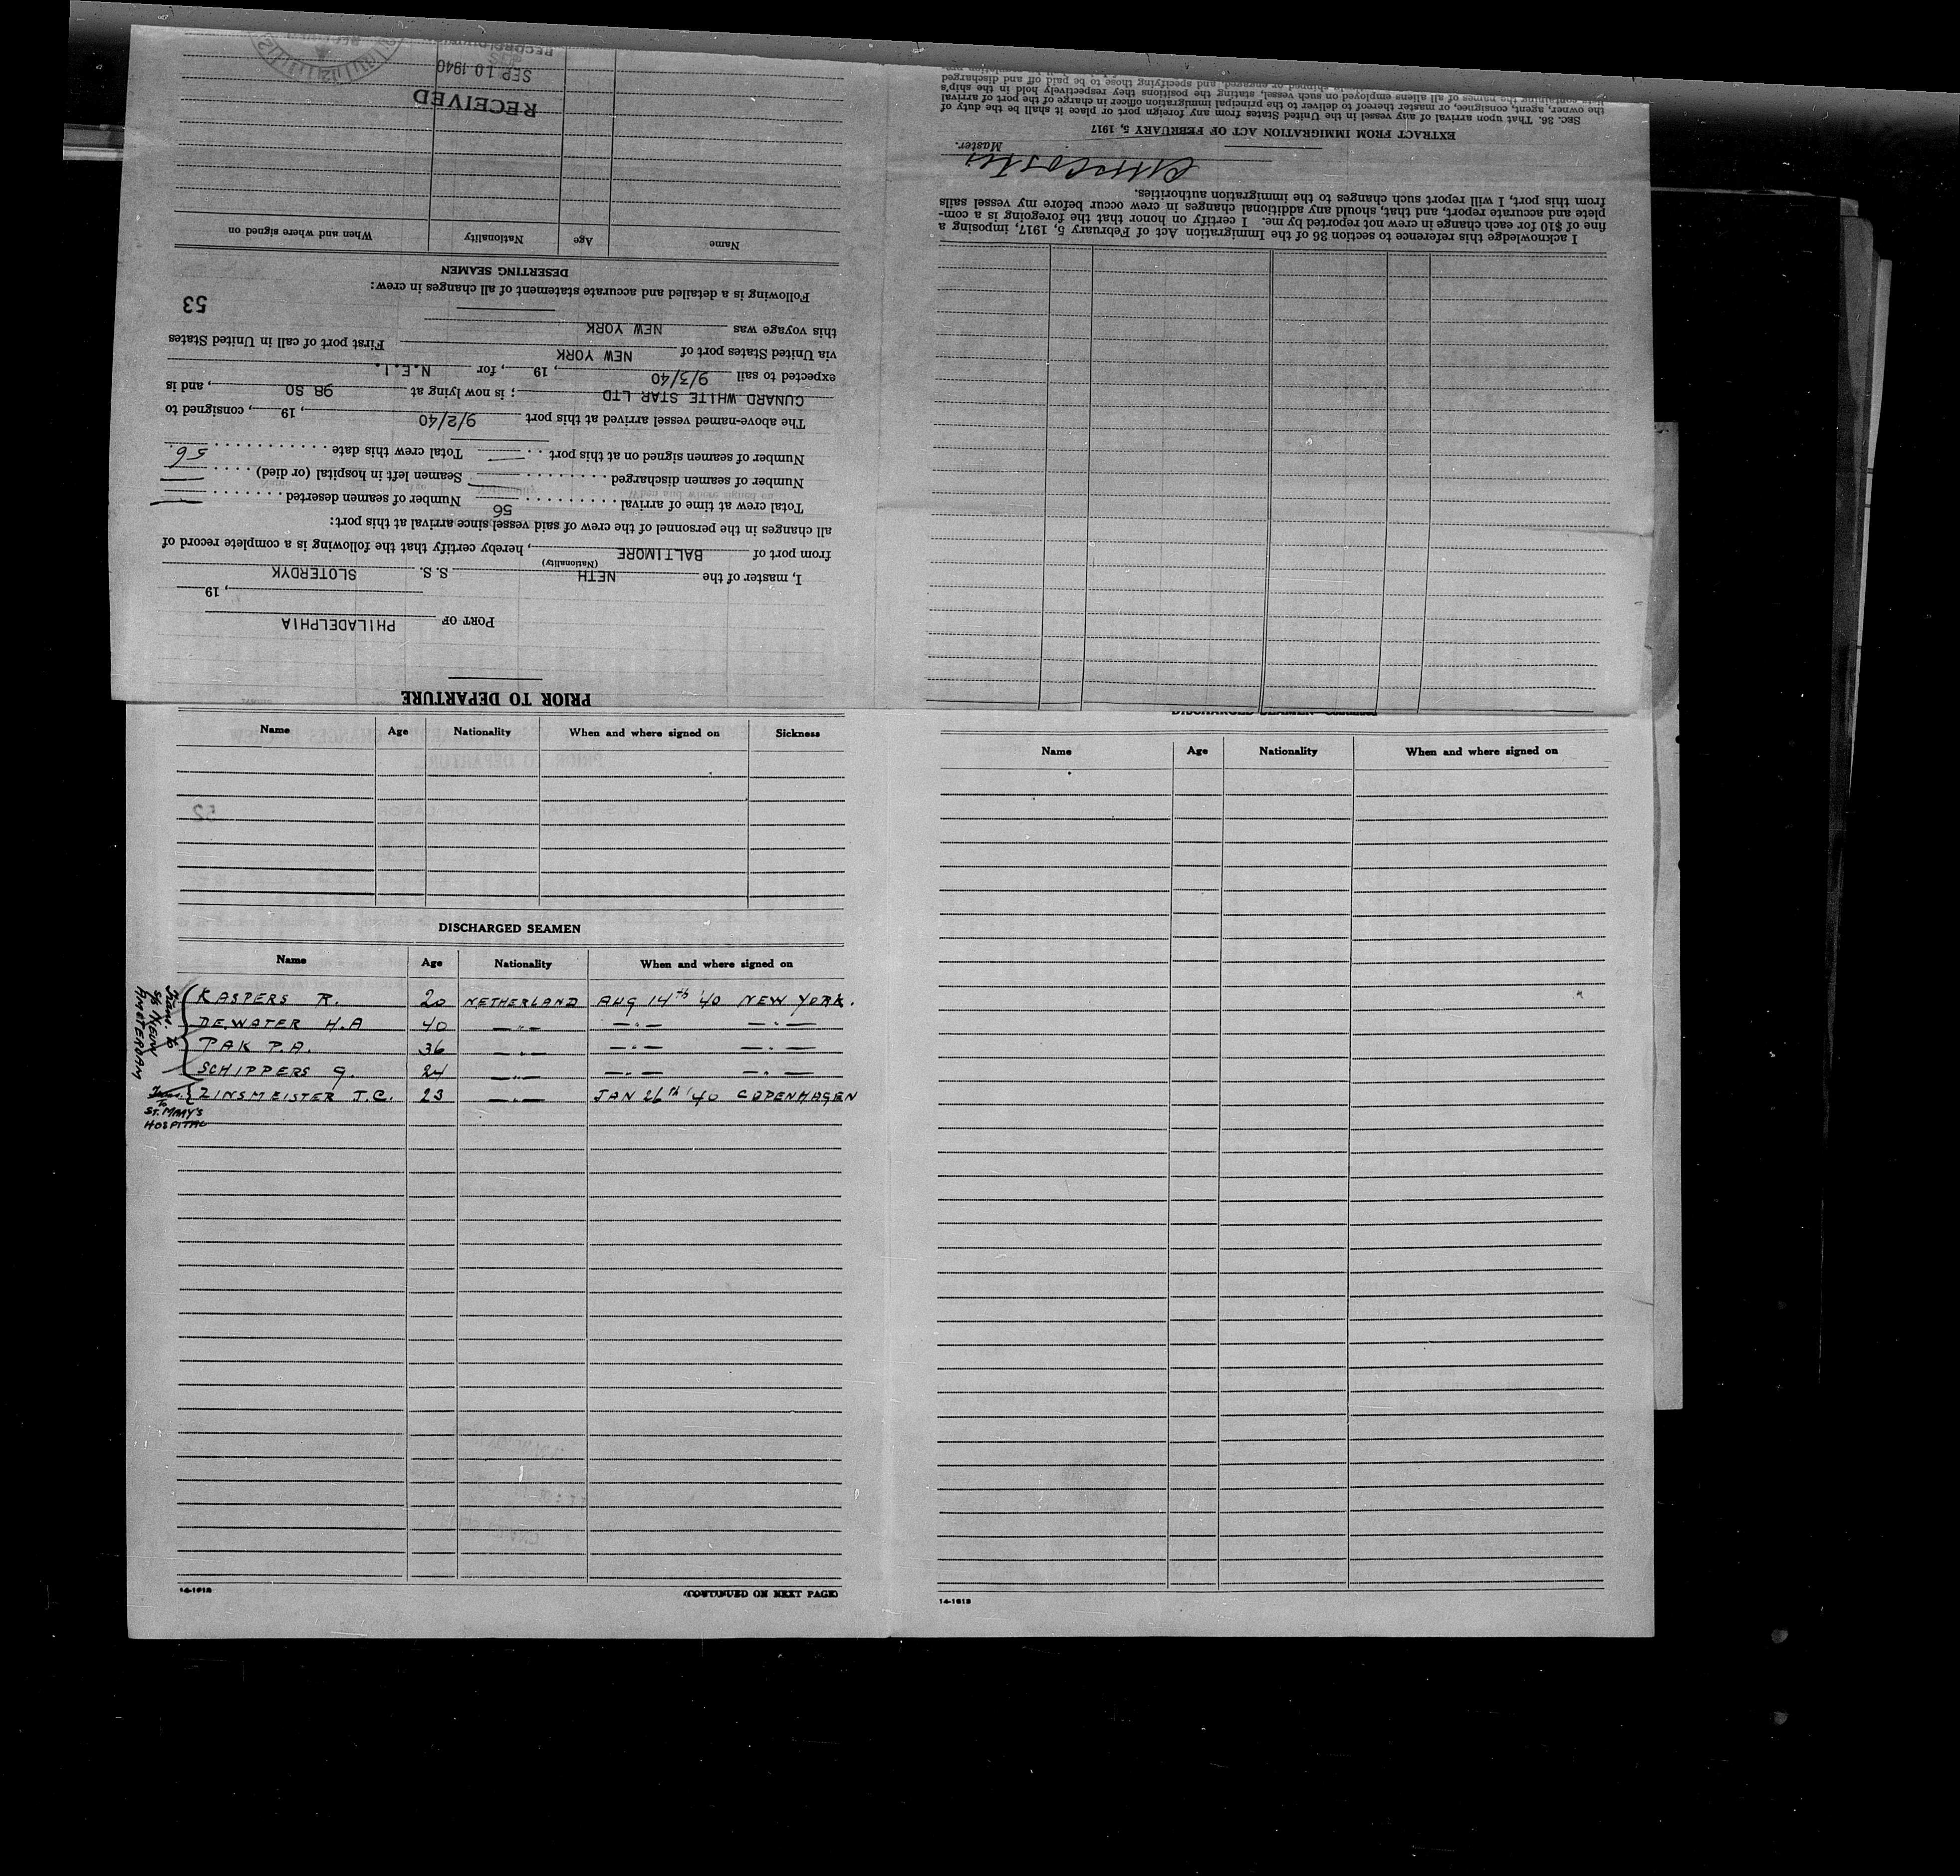 PRIOR TO DEPARTURE
PORT OF PHILADELPHIA
, 19
I, master of the NETH S. S. SLOTERDYK
(Nationality)
from port of BALTIMORE, hereby certify that the following is a complete record of
all changes in the personnel of the crew of said vessel since arrival at this port:
Total crew at time of arrival 56 Number of seamen deserted —
Number of seamen discharged — Seamen left in hospital (or died) —
Number of seamen signed on at this port — Total crew this date 56.
The above-named vessel arrived at this port 9/2/40, 19, consigned to
CUNARD WHITE STAR LTD; is now lying at 98 SO, and is
expected to sail 9/3/40, 19, for N.E.I.
via United States port of NEW YORK First port of call in United States
this voyage was NEW YORK
53
Following is a detailed and accurate statement of all changes in crew:
DESERTING SEAMEN
Name Age Nationality When and where signed on
RECEIVED
SEP 10 1940
I acknowledge this reference to section 36 of the Immigration Act of February 5, 1917, imposing a
fine of $10 for each change in crew not reported by me. I certify on honor that the foregoing is a com-
plete and accurate report, and that, should any additional changes in crew occur before my vessel sails
from this port, I will report such changes to the immigration authorities.
Master.
EXTRACT FROM IMMIGRATION ACT OF FEBRUARY 5, 1917
SEC. 36. That upon arrival of any vessel in the United States from any foreign port or place it shall be the duty of
the owner, agent, consignee, or master thereof to deliver to the principal immigration officer in charge of the port of arrival
lists containing the names of all aliens employed on such vessel, stating the positions they respectively hold in the ship's
shipped or engaged, and specifying those to be paid off and discharged
Name Age Nationality When and where signed on Sickness
52
DISCHARGED SEAMEN
Name Age Nationality When and where signed on
KASPERS R. 20 NETHERLAND AUG 14th '40 NEW YORK.
DE WATER H.A 40 —"— —"— —"—
PAK P.A. 36 —"— —"— —"—
SCHIPPERS G. 24 —"— —"— —"—
ZINSMEISTER J.C. 23 —"— JAN 26th '40 COPENHAGEN
Trans. to
S/S NIEUW
AMSTERDAM
To
ST. MARY'S
HOSPITAL
14-1618
(CONTINUED ON NEXT PAGE)
DISCHARGED SEAMEN—Continued
Name Age Nationality When and where signed on
14-1618